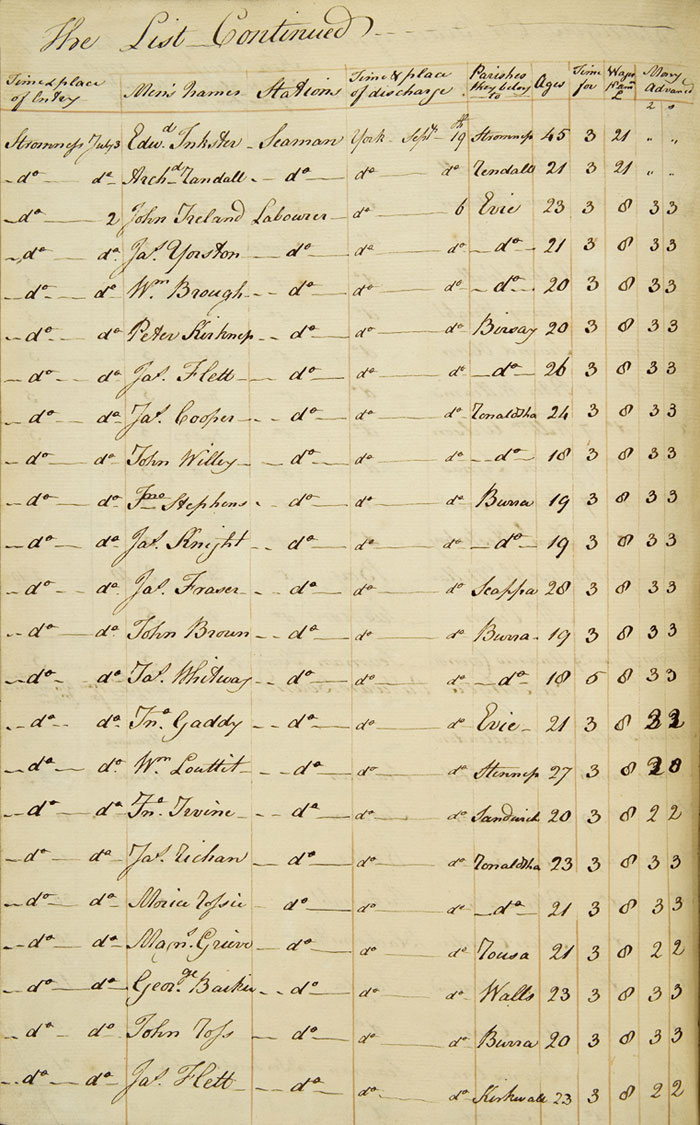 The List Continued
Time & place of Entry Men's Names Stations Time & place of discharge Parishes they belong to Ages Time for Wages P Ann £ Mony Advanced
Stromness July 3 Edwd Inkster Seaman York Septr 19th Stromness 45 3 21 " "
do do Archd Rendall do do do Rendall 21 3 21 " "
do 2 John Ireland Labourer do 6 Evie 23 3 8 3 3
do do Jas Yorston do do do do 21 3 8 3 3
do do Wm Brough do do do do 20 3 8 3 3
do do Peter Kirkness do do do Birsay 20 3 8 3 3
do do Jas Flett do do do do 26 3 8 3 3
do do Jas Cooper do do do Ronaldsha 24 3 8 3 3
do do John Willey do do do do 18 3 8 3 3
do do Jno Stephens do do do Burra 19 3 8 3 3
do do Jas Knight do do do do 19 3 8 3 3
do do Jas Fraser do do do Scappa 28 3 8 3 3
do do John Brown do do do Burra 19 3 8 3 3
do do Jas Whitway do do do do 18 5 8 3 3
do do Jno Gaddy do do do Evie 21 3 8
do do Wm Louttit do do do Stenness 27 3 8
do do Jno Irvine do do do Sandwick 20 3 8 2 2
do do Jas Richan do do do Ronaldsha 23 3 8 3 3
do do Morice Rossie do do do do 21 3 8 3 3
do do Magns Grieve do do do Rousa 21 3 8 2 2
do do George Baikie do do do Walls 23 3 8 3 3
do do John Ross do do do Burra 20 3 8 3 3
do do Jas Flett do do do Kirkwall 23 3 8 2 2